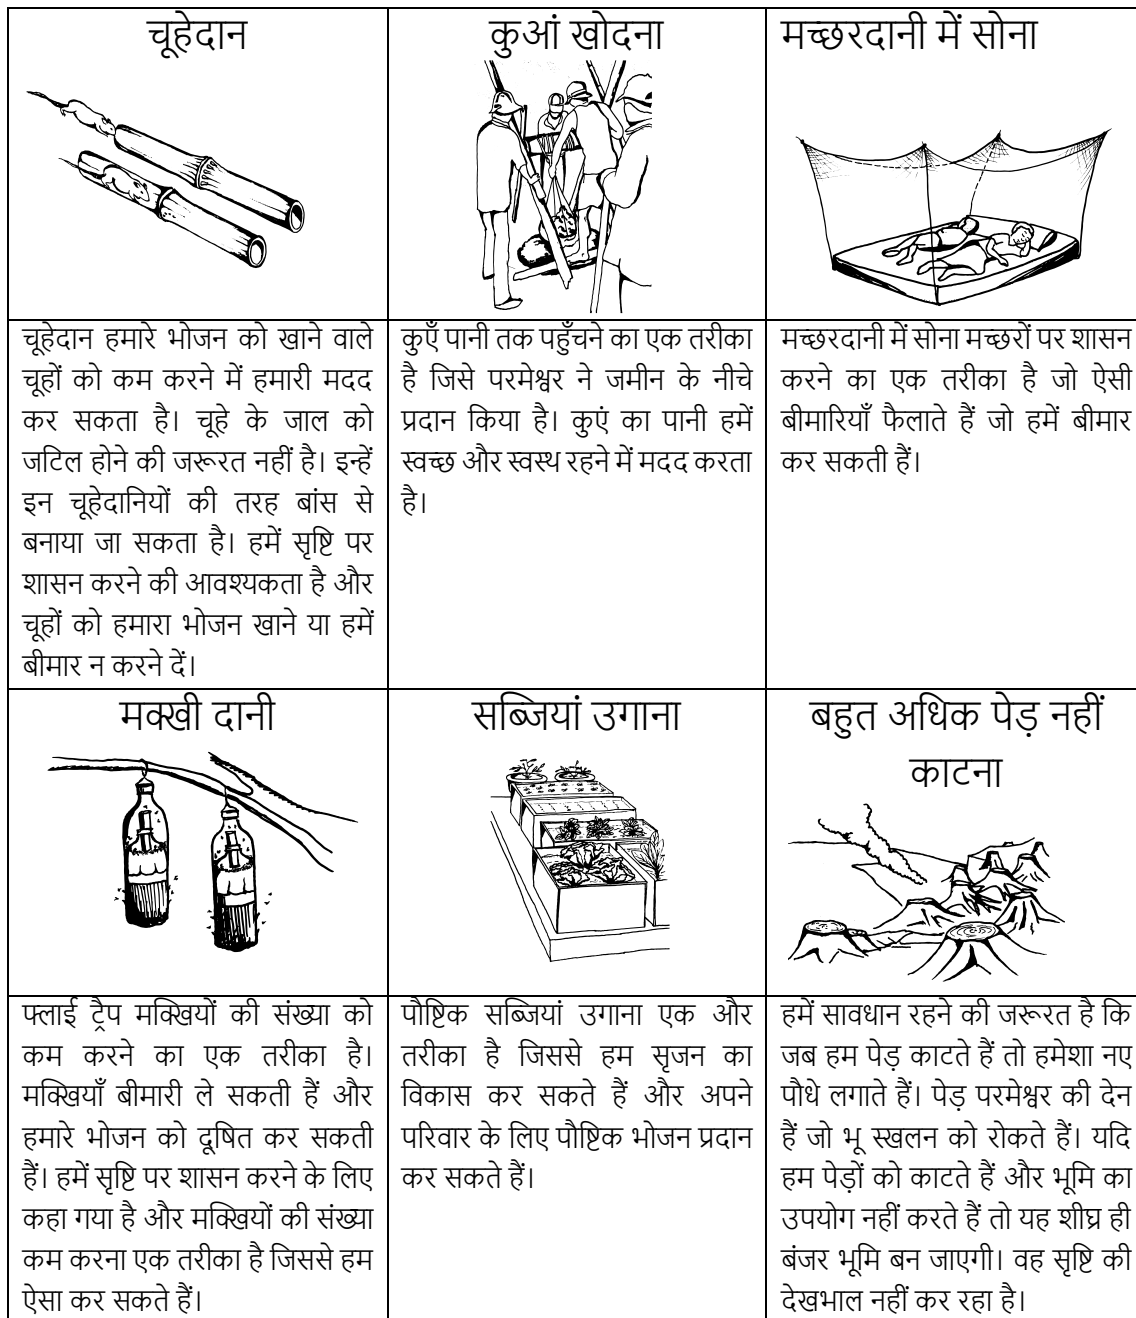 चूहेदान
कुआं खोदना
मच्छरदानी में सोना
चूहेदान हमारे भोजन को खाने वाले
चूहों को कम करने में हमारी मदद
कर सकता है। चूहे के जाल को
जटिल होने की जरूरत नहीं है। इन्हें
इन चूहेदानियों की तरह बांस से
बनाया जा सकता है। हमें सृष्टि पर
शासन करने की आवश्यकता है और
चूहों को हमारा भोजन खाने या हमें
बीमार न करने दें।
कुएँ पानी तक पहुँचने का एक तरीका
है जिसे परमेश्वर ने जमीन के नीचे
प्रदान किया है। कुएं का पानी हमें
स्वच्छ और स्वस्थ रहने में मदद करता
है।
मच्छरदानी में सोना मच्छरों पर शासन
करने का एक तरीका है जो ऐसी
बीमारियाँ फैलाते हैं जो हमें बीमार
कर सकती हैं।
मक्खी दानी
सब्जियां उगाना
बहुत अधिक पेड़ नहीं
काटना
फ्लाई ट्रैप मक्खियों की संख्या को
कम करने का एक तरीका है।
मक्खियाँ बीमारी ले सकती हैं और
हमारे भोजन को दूषित कर सकती
हैं। हमें सृष्टि पर शासन करने के लिए
कहा गया है और मक्खियों की संख्या
कम करना एक तरीका है जिससे हम
ऐसा कर सकते हैं।
पौष्टिक सब्जियां उगाना एक और
तरीका है जिससे हम सृजन का
विकास कर सकते हैं और अपने
परिवार के लिए पौष्टिक भोजन प्रदान
कर सकते हैं।
हमें सावधान रहने की जरूरत है कि
जब हम पेड़ काटते हैं तो हमेशा नए
पौधे लगाते हैं। पेड़ परमेश्वर की देन
हैं जो भू स्खलन को रोकते हैं। यदि
हम पेड़ों को काटते हैं और भूमि का
उपयोग नहीं करते हैं तो यह शीघ्र ही
बंजर भूमि बन जाएगी। वह सृष्टि की
देखभाल नहीं कर रहा है।